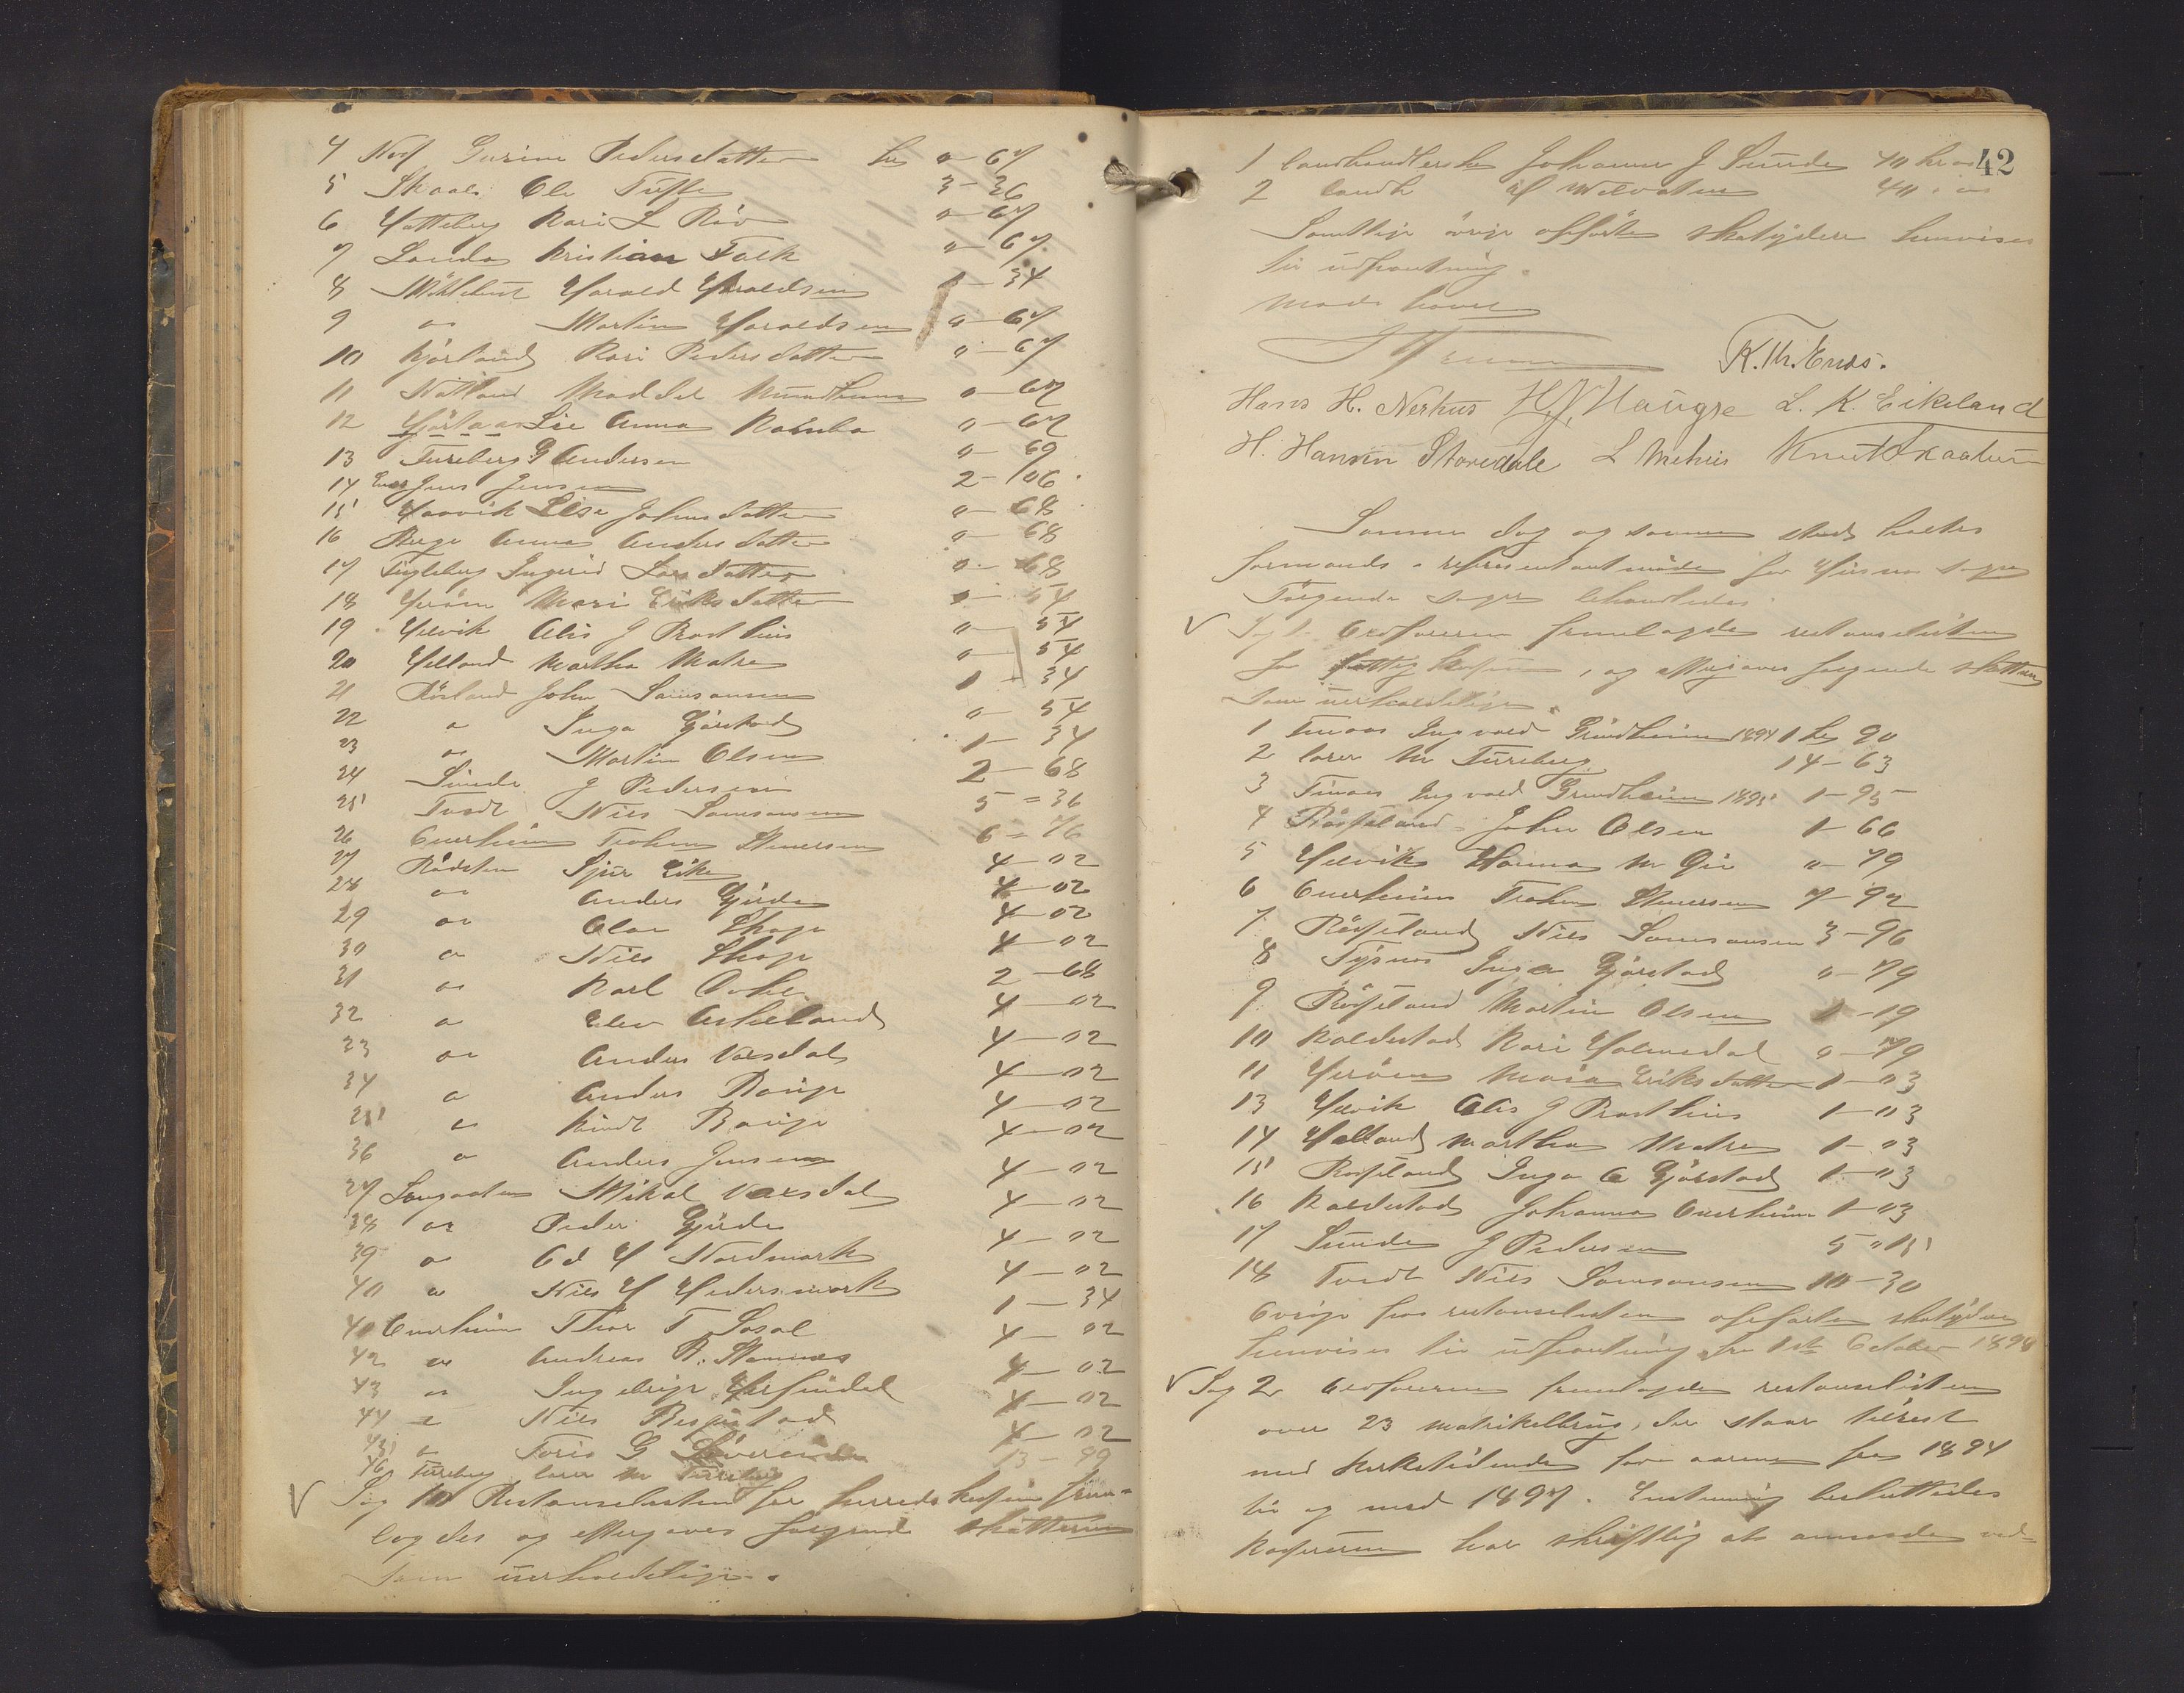 4 Næs Gurine Pedersdatter kr " 67
5 Skaale Ole Tuffte 3 - 36
6 Hatteberg Kari L Röv " - 67
7 Landa Kristian Falk " - 67
8 Mehlhus Harald Haraldsen 1 - 34
9 " Martin Haraldsen " - 67
10 Gjerland Kari Pedersdatter " - 67
11 Natland Maddel Mundheim " - 67
12 Lie Anna " - 67
13 Tureberg G Andersen " - 69
14 Enes Jens Jensen 2 - 106
15 Haavik Lise Johnsdatter " - 68
16 Berge Anna Andersdatter " - 68
17 Fugleberg Ingerid Larsdatter " - 68
18 Heröen Mari Eriksdatter " - 54
19 Helvik Alis J Prosthus " - 54
20 Helland Martha Matre " - 54
21 John Samsonsen 1 - 34
22 " Inga Gjerstad " - 54
23 " Martin Olsen 1 - 34
24 Sunde J Pedersen 2 - 68
25 Tvedt Nils Samsonsen 5 = 36
26 Enerheim Trohn Stenersen 6 = 76
27 Rådsten Sjur Eike 4 - 02
28 " Anders Gjerde 4 - 02
29 " Olav Skage 4 - 02
30 " Nils Skage 4 - 02
31 " Karl 2 - 68
32 " Elev Askeland 4 - 02
33 " Anders Vaxdal 4 - 02
34 " Anders Bauge 4 - 02
35 " Knudt Bauge 4 - 02
36 " Anders Jensen 4 - 02
37 Laugaaten Mikal Vaxdal 4 - 02
38 " Peder Gjerde 4 - 02
39 " Od H Nordmark 4 - 02
40 " Nils H Hedersmark 4 - 02
40 Enerheim Thor T 1 - 34
42 " Andreas B. Stamnes 4 - 02
43 " Ingebrigt Herfindal 4 - 02
44 " Nils 4 - 02
45 " Toris G 4 - 02
46 Tureberg lærer M Tureberg 13 - 99
V Sag 10 Restanselisten for herredskassen frem=
lagdes og eftergaves følgende skatterne
som uerholdelige.
42
1 landhandlerske Johanne J Sunde 40 kr "
2 landh H Melvaten 40 "
Samtlige övrige opførte skatydere henvises
til udpantning.
Møde hævet
K. Th. Enæs.
Hans H. Nerhus H.J. Haugse L. K. Eikeland
H. Hansen Storedale L Mehus Knut Skaaluren
Samme dag og samme sted holtes
formands - representantmöde for sogn
Følgende sager behandledes.
V Sag 1. Ordføreren fremlagde restanselisten
for fattigkassen, og eftergaves følgende skatterne
som uerholdelige.
1 Ingvald Grindheim 1894 1 kr 90
2 lærer M Tureberg 14 - 63
3 Ingvald Grindheim 1895 1 - 95
4 Røsseland John Olsen 1 - 66
5 Helvik Hanna M Gie " - 79
6 Enerheim Trohn Stenersen 7 - 92
7 Røsseland Nils Samsonsen 3 - 96
8 Tysnes Inga Gjerstad " - 79
9 Røsseland Martin Olsen 1 - 19
10 Koldestad Kari Holmedal " - 79
11 Heröen Maria Eriksdatter 1 - "3
13 Helvik Alis J Prosthus 1 - "3
14 Helland Martha Matre 1 - "3
15 Røsseland Inga O Gjerstad 1 - "3
16 Koldestad Johanna Enerheim 1 - "3
17 Sunde J Pedersen 5 " 15
18 Tvedt Nils Samsonsen 10 - 30
Övrige paa restanselisten opførte skatydere
henvises til udpantning fra 1ste October 1898
V Sag 2 Ordføreren fremlagde restanselisten
over 23 matrikelbrug, der staar tilrest
med kirketienden for aarene fra 1894
til og med 1897. Enstemmig besluttedes
Kassereren har skriftlig at anmode ved=